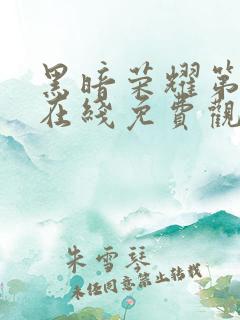 黑暗荣耀第
在线免費觀
朱雪琴
未经同意禁止转载